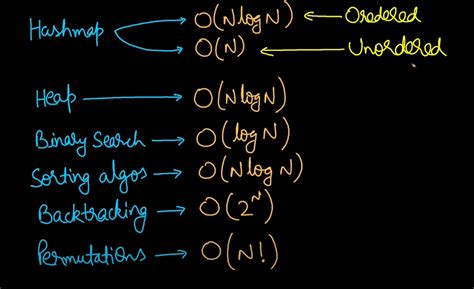 Hashmap → O(NlogN) ← Oredered
→ O(N) ← Unordered
Heap → O(NlogN)
Binary Search → O(logN)
Sorting algos → O(NlogN)
Backtracking → O(2ᴺ)
Permutations → O(N!)